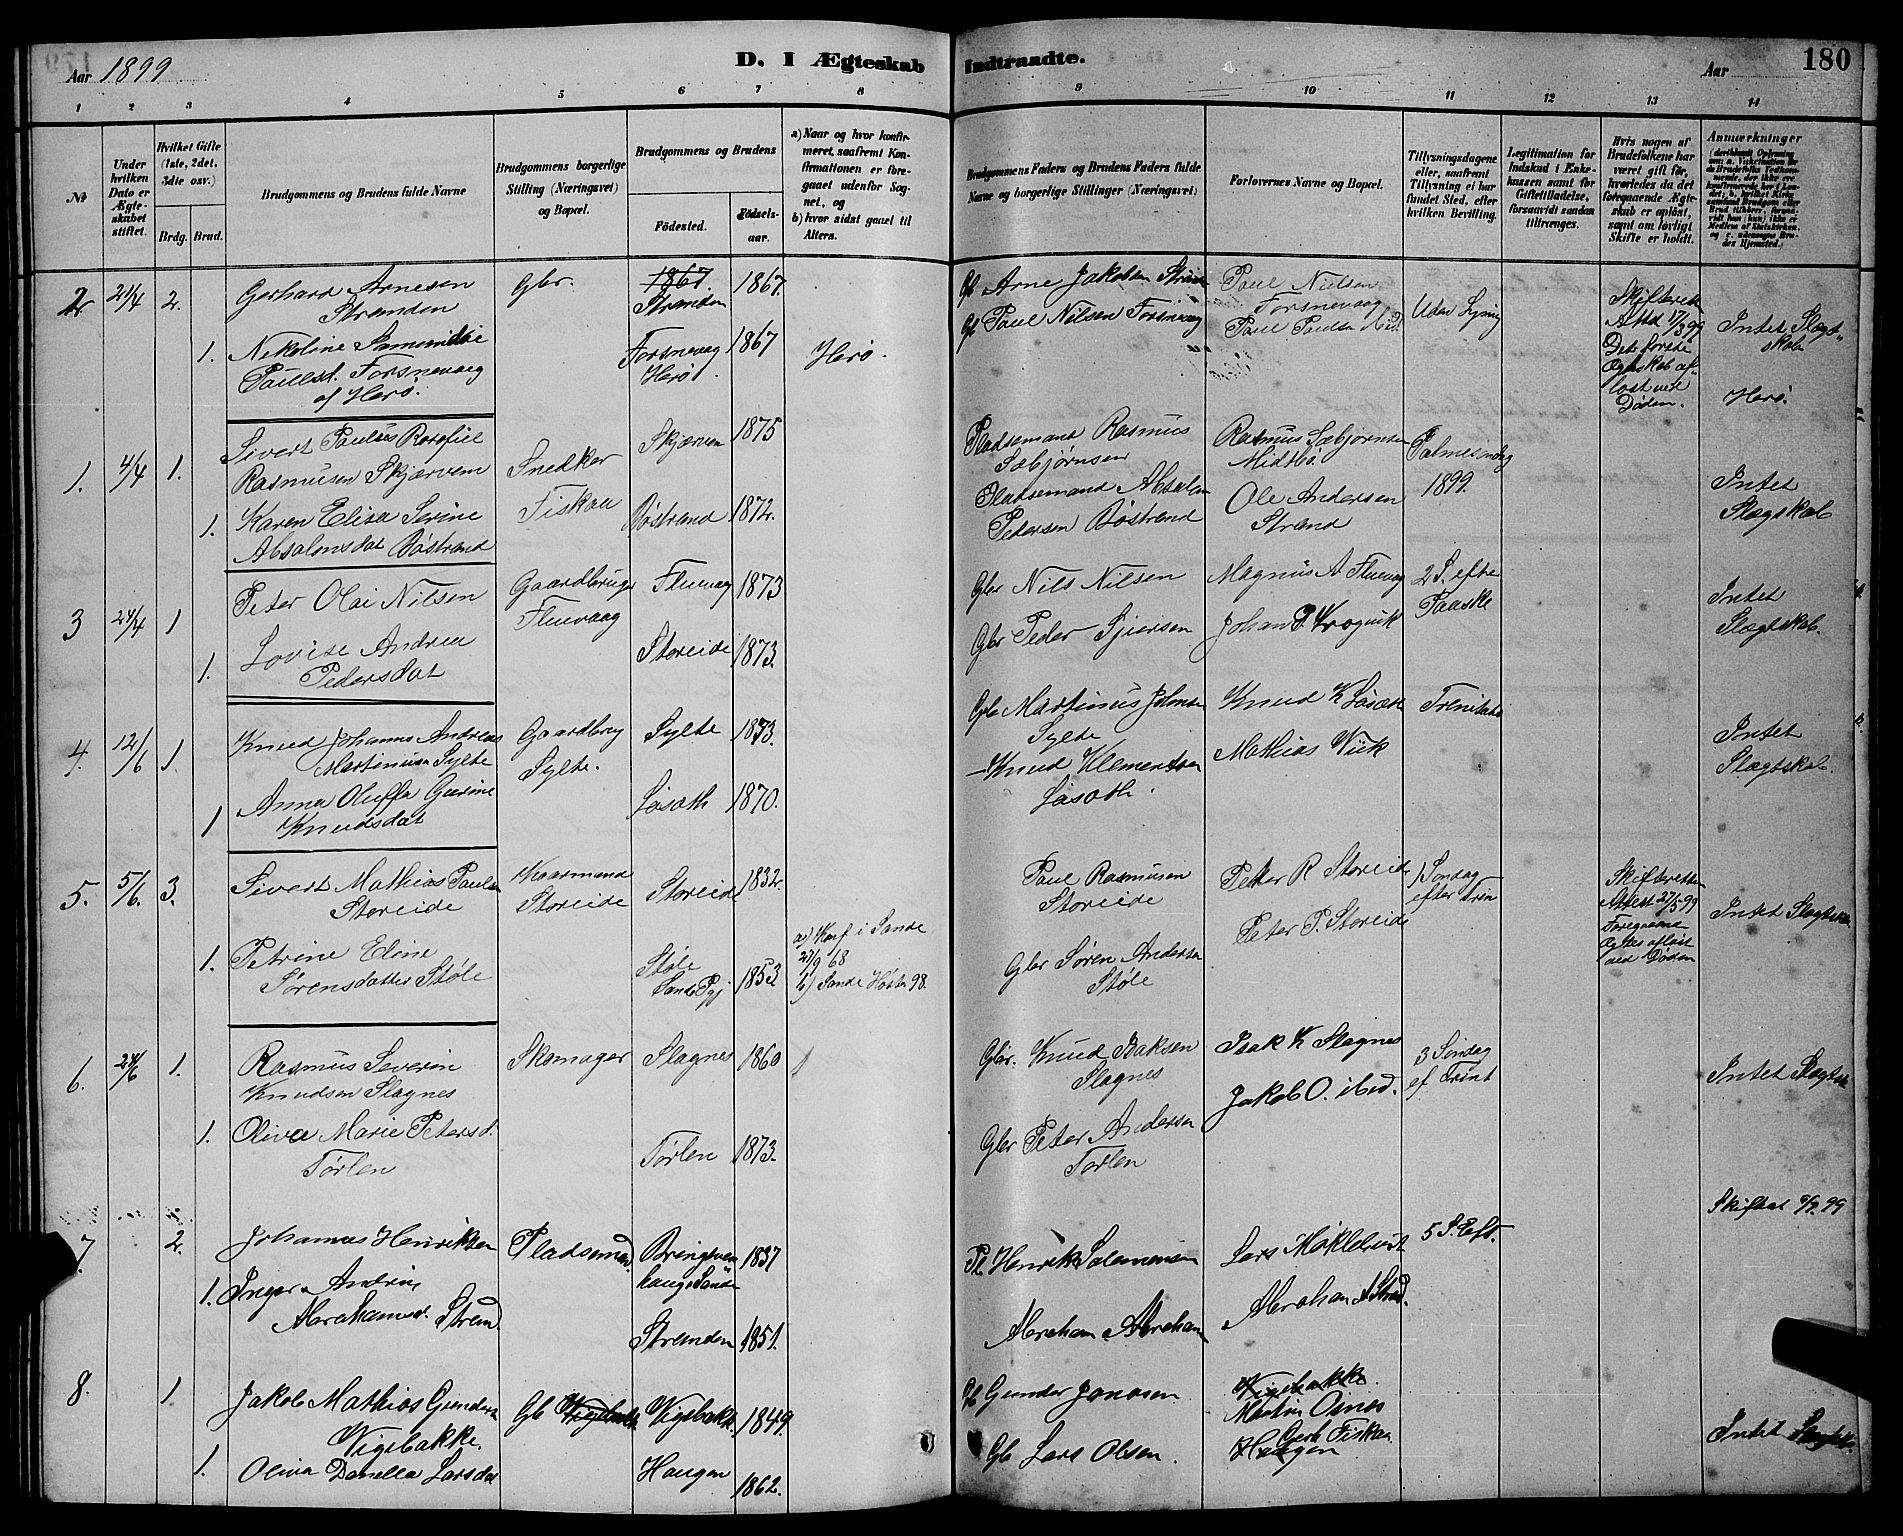 Aar 1899
D. I Ægteskab Indtraadte.
Aar
180
1 2 3 4 5 6 7 8 9 10 11 12 13 14
No
Under hvilken Dato er Ægteskabet stiftet.
Hvilket Gifte (1ste, 2det, 3dte osv.)
Brdg. Brud.
Brudgommens og Brudens fulde Navne
Brudgommens borgerlige Stilling (Næringsvei) og Bopæl.
Brudgommens og Brudens
Fødested.
Fødselsaar.
a) Naar og hvor konfirmeret, saafremt Konfirmationen er foregaaet udenfor Sognet, og
b) hvor sidst gaaet til Alters.
Brudgommens Faders og Brudens Faders fulde Navne og borgerlige Stillinger (Næringsvei)
Forlovernes Navne og Bopæl.
Tillysningsdagene eller, saafremt Tillysning ei har fundet Sted, efter hvilken Bevilling.
Legitimation for Indskud i Enkekassen samt for Giftetilladelse, forsaavidt saadan tiltrænges.
Hvis nogen af Brudefolkene har været gift før, hvorledes da det foregaaende Ægteskab er opløst, samt om lovligt Skifte er holdt.
Anmærkninger
2. 21/4 2.
Gerhard Arnesen
Stranden
Gbr.
1867.
Stranden
1867.
Gb Arne Jakobsen
Paul Nilsen
Forsnevaag
Uden Lysning
Skifterets
Attest 17/3 99
Det første
Ægteskab af-
løst ved
Døden.
Intet Slægt-
skab
Herø.
1. Nikoline
Paulsd. Forsnevaag
af Herø.
Forsnevaag
Herø.
1867
Herø.
Gb Paul Nilsen Forsnevaag
Paul Paulsen
1. 4/4 1.
Sivert Paulus
Rasmusen Skjærvem
Snedker
Fiskaa
Skjærven
1875
Pladsemand Rasmus
Sæbjørnsen
Rasmus Sæbjørnsen
Midtbø.
Palmesøndag
1899.
Intet
Slægskab
1. Karen Elisa Serine
Absalonsdat Bøstrand
Bøstrand
1872.
Pladsemand Absalon
Petersen Bøstrand
Ole Andersen
Strand
3 24/4 1
Peter Olai Nilsen
Gaardbruger
Fluevaag
Fluevag
1873
Gbr Nils Nilsen
Magnus A Fluevaag
2 S. efter
Paaske
Intet
Slægtskab.
1. Lovise Andrea
Pedersdat
Storeide
1873.
Gbr Peder
Johan P. Krogvik
4. 12/6 1.
Knud Johannes Andreas
Martinusen Sylte
Gaardbrug
Sylte.
Sylte
1873.
Gb Martinus Johnsen
Sylte
Knud K Løsæth
Intet
Slægtskab.
1 Anna Oluffa Gurine
Knudsdat
Løsæth
1870.
– Knud Klementsen
Løsæth.
Mathias Wiik
5. 5/6. 3.
Sivert Mathias Paulsen
Storeide
Kaarmand
Storeide
Storeide
1832.
Paul Rasmusen
Storeide
Peter R Storeide
1 Søndag
efter Trin
Skifteretten
Attest 27/5 99
Foregaaende
Ægtes afløst
ved Døden
Intet Slægtskab
1. Petrine Eline
Sørensdatter Støle
Støle
Sande Pgj
1853
a) Konf i Sande
27/9 68
b) Sande Høsten 98.
Gbr Søren Andersen
Støle
Peter P. Storeide
6. 24/6 1.
Rasmus Severin
Knudsen Slagnes
Skomager
Slagnes
1860
Gbr. Knud Isaksen
Slagnes
Isak K Slagnes
3 Søndag
ef Trint
Intet Slægtsk
1. Oliva Marie Petersd.
Tørlen
Tørlen
1873.
Gbr Peter Andersen
Tørlen
Jakob O. ibid.
Skiftet 9/7. 99
7. 2.
Johannes Henriksen
Pladsemand
Bringsven
haug Sande
1837
Pl Henrik Salomonsen
Lars Møklebust
5 S. Eft.
1. Inger Andrine
Abrahamsd. Strand.
Stranden
1851.
Abraham Abraham
Abraham A Strd.
8. 1
Jakob Mathias Gundersen
Vigebakke.
Gb
Vigebakk.
1849.
Gb Gunder Jonasen
Vigebakke.
Martin Osnes
Intet
1. Oliva Danella Larsdat
Haugen
1862.
Gb Lars Olsen.
Gerh Fiskaa
Haugen